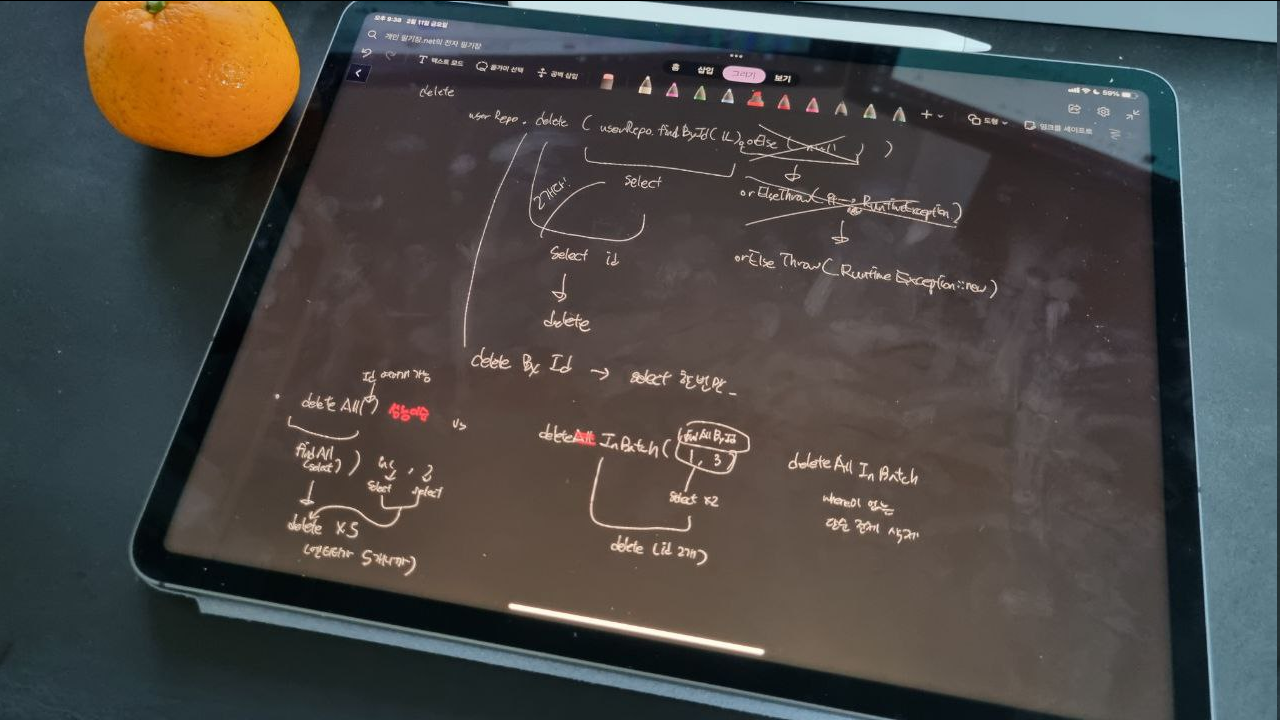 오후 9:38 2월 11일 금요일
59%
개인 필기장.net의 전자 필기장
홈 삽입 그리기 보기
텍스트 모드 올가미 선택 공백 삽입
도형 잉크를 셰이프로
delete
userRepo. delete ( userRepo.findById(1L).orElse ( ) )
select
2개다!
orElseThrow( RuntimeException)
select id
orElse Throw( Runtime Exception::new)
delete
delete By Id → select 한번만
Id 여러개 가능
delete All( ) 성능이슈
vs
delete All InBatch( findAllById
1, 3
delete All In Batch
findAll
(select) ) 1, 3
select select
select x2
where이 없는
단순 전체 삭제
delete x5
(엔티티가 5개니까)
delete (id 2개)